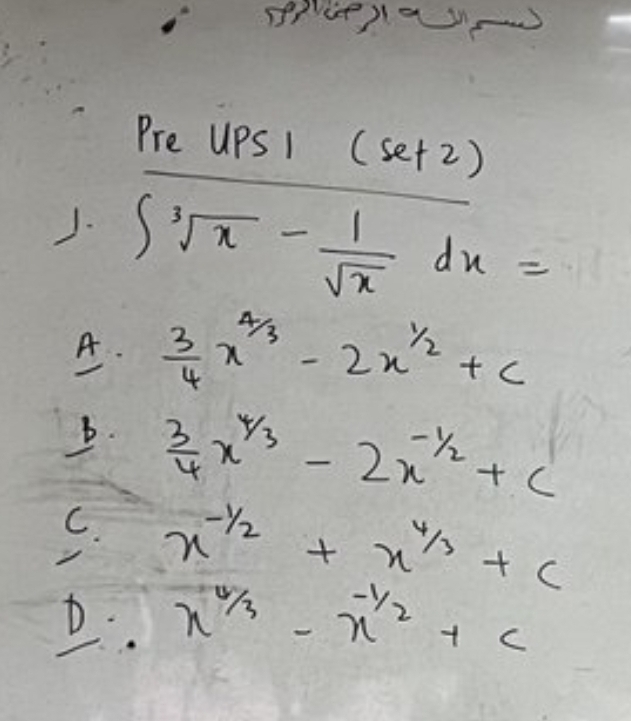 بسم الله الرحمن الرحيم
Pre UPS 1 (set 2)
1. ∫ ∛x - 1/√x dx =
A. 3/4 x^4/3 - 2x^1/2 + c
B. 3/4 x^4/3 - 2x^-1/2 + c
C. x^-1/2 + x^4/3 + c
D. x^4/3 - x^-1/2 + c